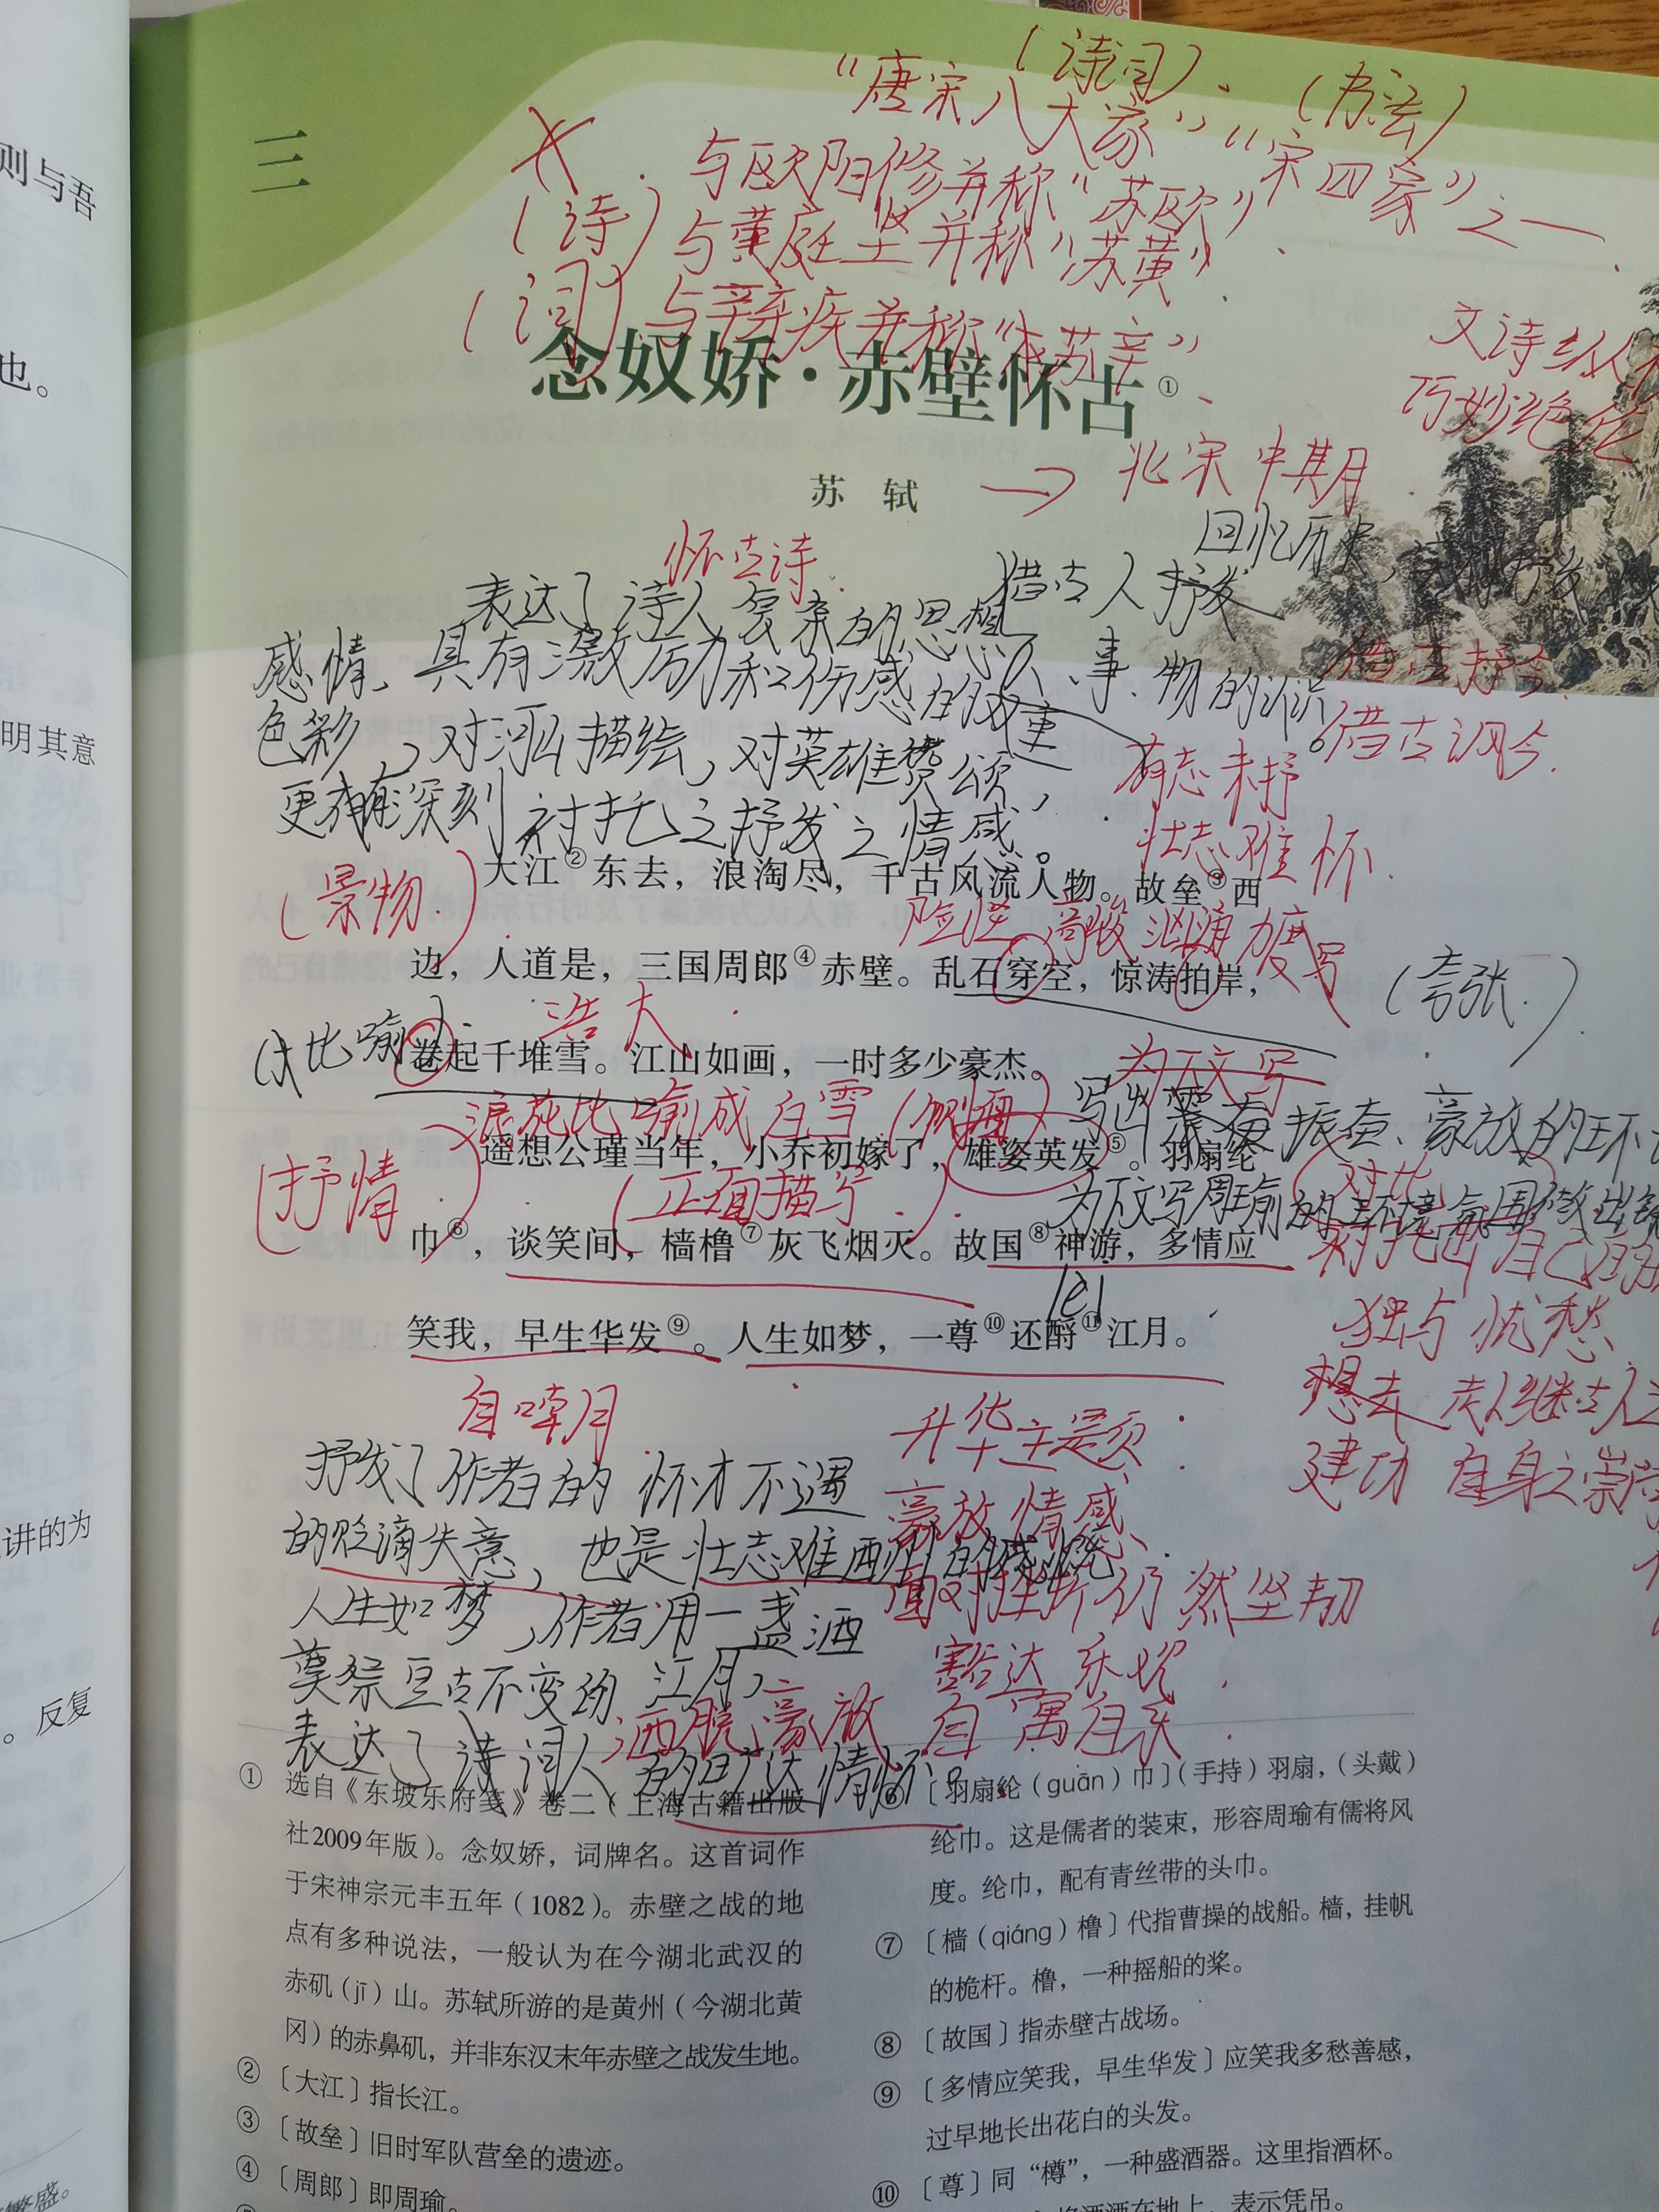 则与吾
也。
明其意
讲的为
。反复
繁盛。
三
（诗词）
（书法）
“唐宋八大家”“宋四家”之一
与欧阳修并称“苏欧”
（诗）与黄庭坚并称“苏黄”
（词）与辛弃疾并称“苏辛”
念奴娇·赤壁怀古①
巧妙绝伦
苏 轼 → 北宋中期
怀古诗
回忆历史，
借古人抒发
表达了诗人复杂的思想
感情、具有激励和伤感的双重
人、事、物的
色彩，对河山描绘，对英雄赞颂，
更有深刻衬托之抒发之情感。
借古抒今
借古讽今
有志未抒
壮志难怀
（景物）
大江②东去，浪淘尽，千古风流人物。故垒③西
险怪 高峻 汹涌 力度写
边，人道是，三国周郎④赤壁。乱石穿空，惊涛拍岸，
（夸张）
浩大
比喻
卷起千堆雪。江山如画，一时多少豪杰。
为下文写
浪花比喻成白雪（侧面）
写出 振奋、豪放的环
遥想公瑾当年，小乔初嫁了，雄姿英发⑤。羽扇纶
（抒情）
（正面描写）
对比
为下文写周瑜的环境氛围做出
巾⑥，谈笑间，樯橹⑦灰飞烟灭。故国⑧神游，多情应
衬托出自己的
lei
笑我，早生华发⑨。人生如梦，一尊⑩还酹⑪江月。
独与忧愁
想去 继古人之
建功 自身之崇
自嘲
抒发了作者的怀才不遇
的贬谪失意，也是壮志难酬的感慨
人生如梦，作者用一盏酒
奠祭亘古不变的江月，
表达了诗词人的旷达情怀。
洒脱、豪放
升华主题
豪放情感、
面对挫折仍然坚韧
豁达 乐观
自寓自乐
① 选自《东坡乐府笺》卷二（上海古籍出版
社2009年版）。念奴娇，词牌名。这首词作
于宋神宗元丰五年（1082）。赤壁之战的地
点有多种说法，一般认为在今湖北武汉的
赤矶（jī）山。苏轼所游的是黄州（今湖北黄
冈）的赤鼻矶，并非东汉末年赤壁之战发生地。
② 〔大江〕指长江。
③ 〔故垒〕旧时军队营垒的遗迹。
④ 〔周郎〕即周瑜。
⑥ 〔羽扇纶（guān）巾〕（手持）羽扇，（头戴）
纶巾。这是儒者的装束，形容周瑜有儒将风
度。纶巾，配有青丝带的头巾。
⑦ 〔樯（qiáng）橹〕代指曹操的战船。樯，挂帆
的桅杆。橹，一种摇船的桨。
⑧ 〔故国〕指赤壁古战场。
⑨ 〔多情应笑我，早生华发〕应笑我多愁善感，
过早地长出花白的头发。
⑩ 〔尊〕同“樽”，一种盛酒器。这里指酒杯。
将酒洒在地上，表示凭吊。